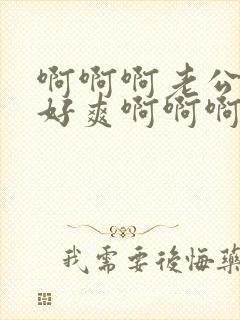 啊啊啊老公
好爽啊啊啊
我需要後悔藥